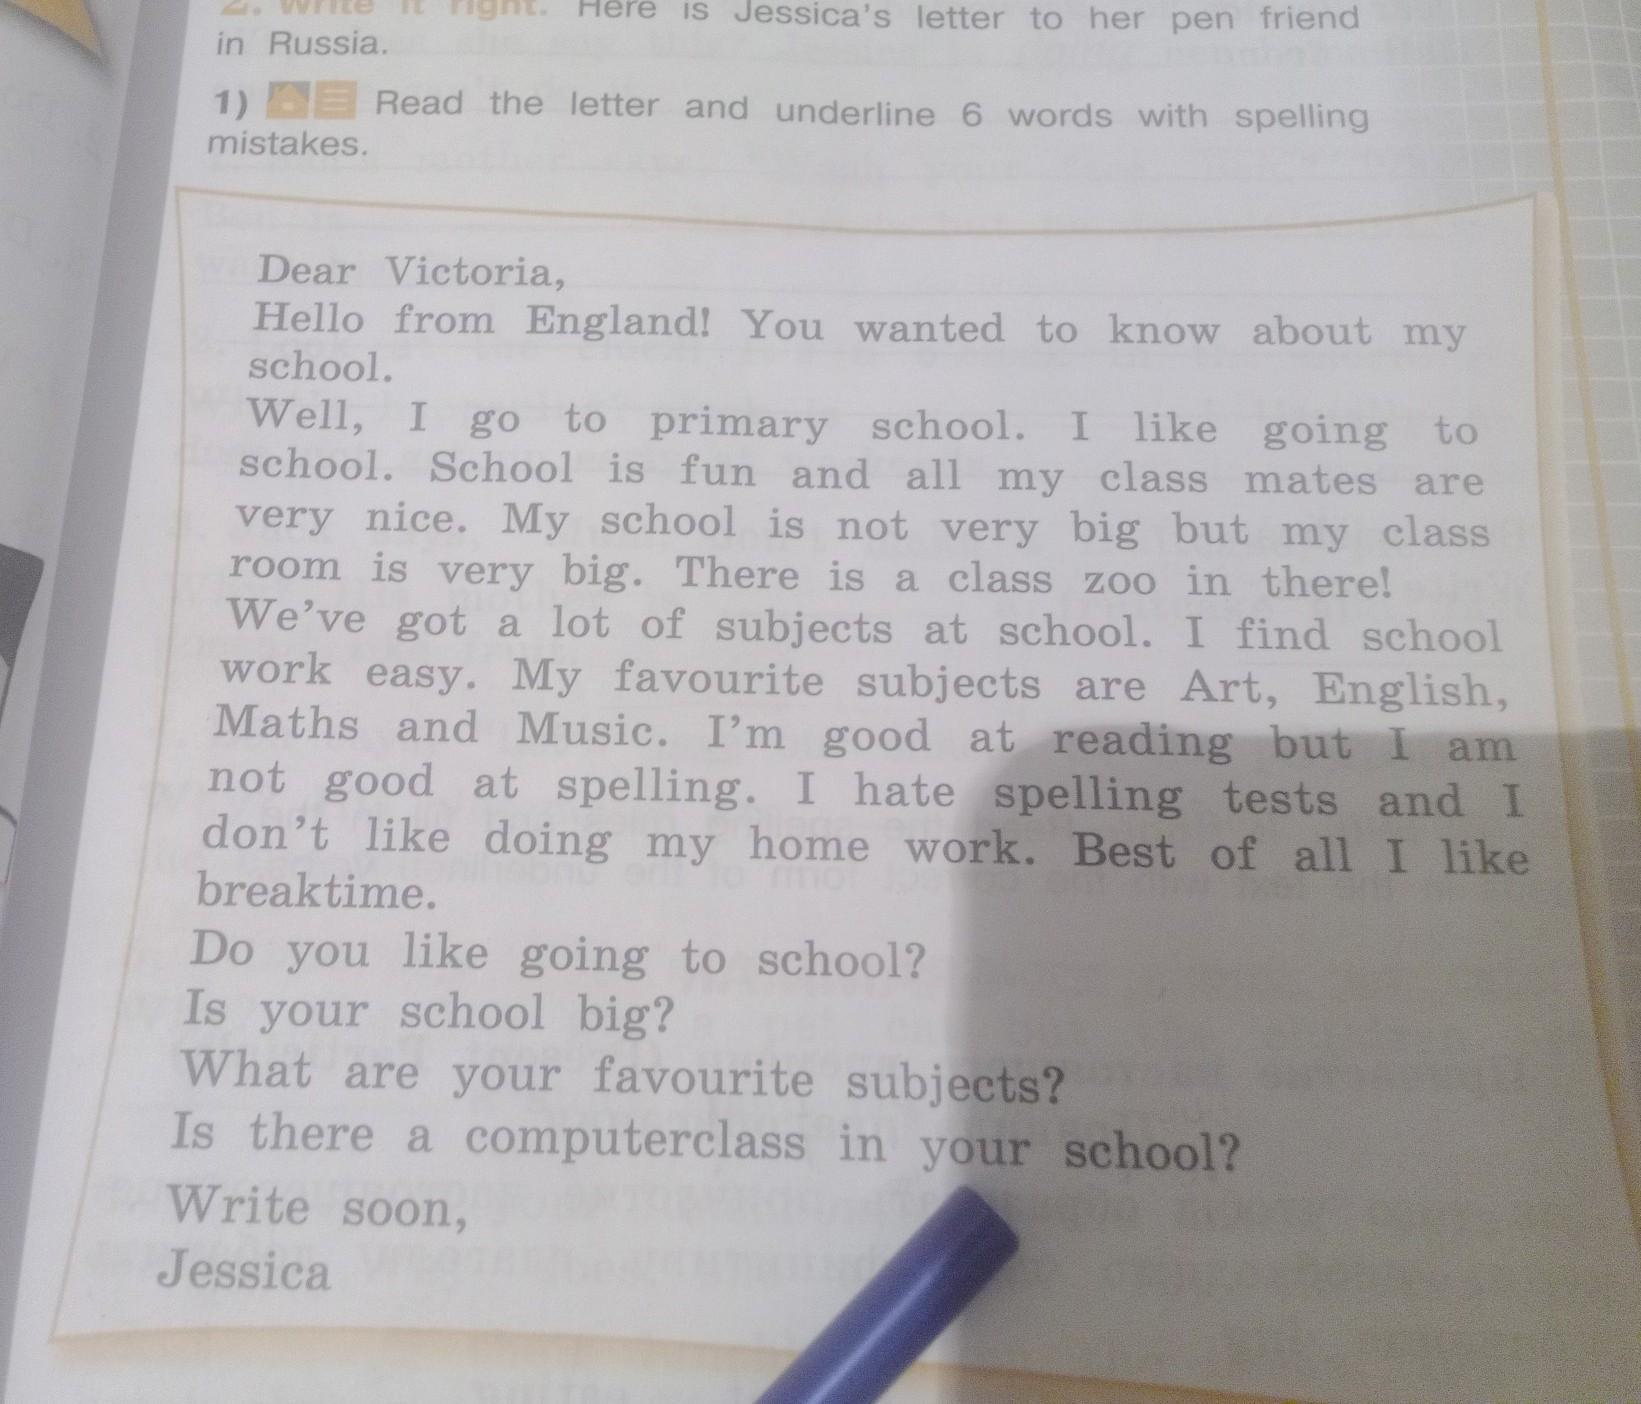 2. Write it right. Here is Jessica's letter to her pen friend
in Russia.
1) Read the letter and underline 6 words with spelling
mistakes.
Dear Victoria,
Hello from England! You wanted to know about my
school.
Well, I go to primary school. I like going to
school. School is fun and all my class mates are
very nice. My school is not very big but my class
room is very big. There is a class zoo in there!
We've got a lot of subjects at school. I find school
work easy. My favourite subjects are Art, English,
Maths and Music. I'm good at reading but I am
not good at spelling. I hate spelling tests and I
don't like doing my home work. Best of all I like
breaktime.
Do you like going to school?
Is your school big?
What are your favourite subjects?
Is there a computerclass in your school?
Write soon,
Jessica